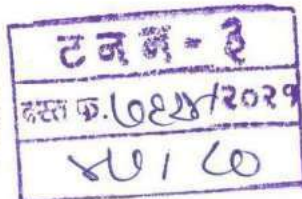 ट न न - ३
दस्त क्र. /२०२१
४७ / ८०